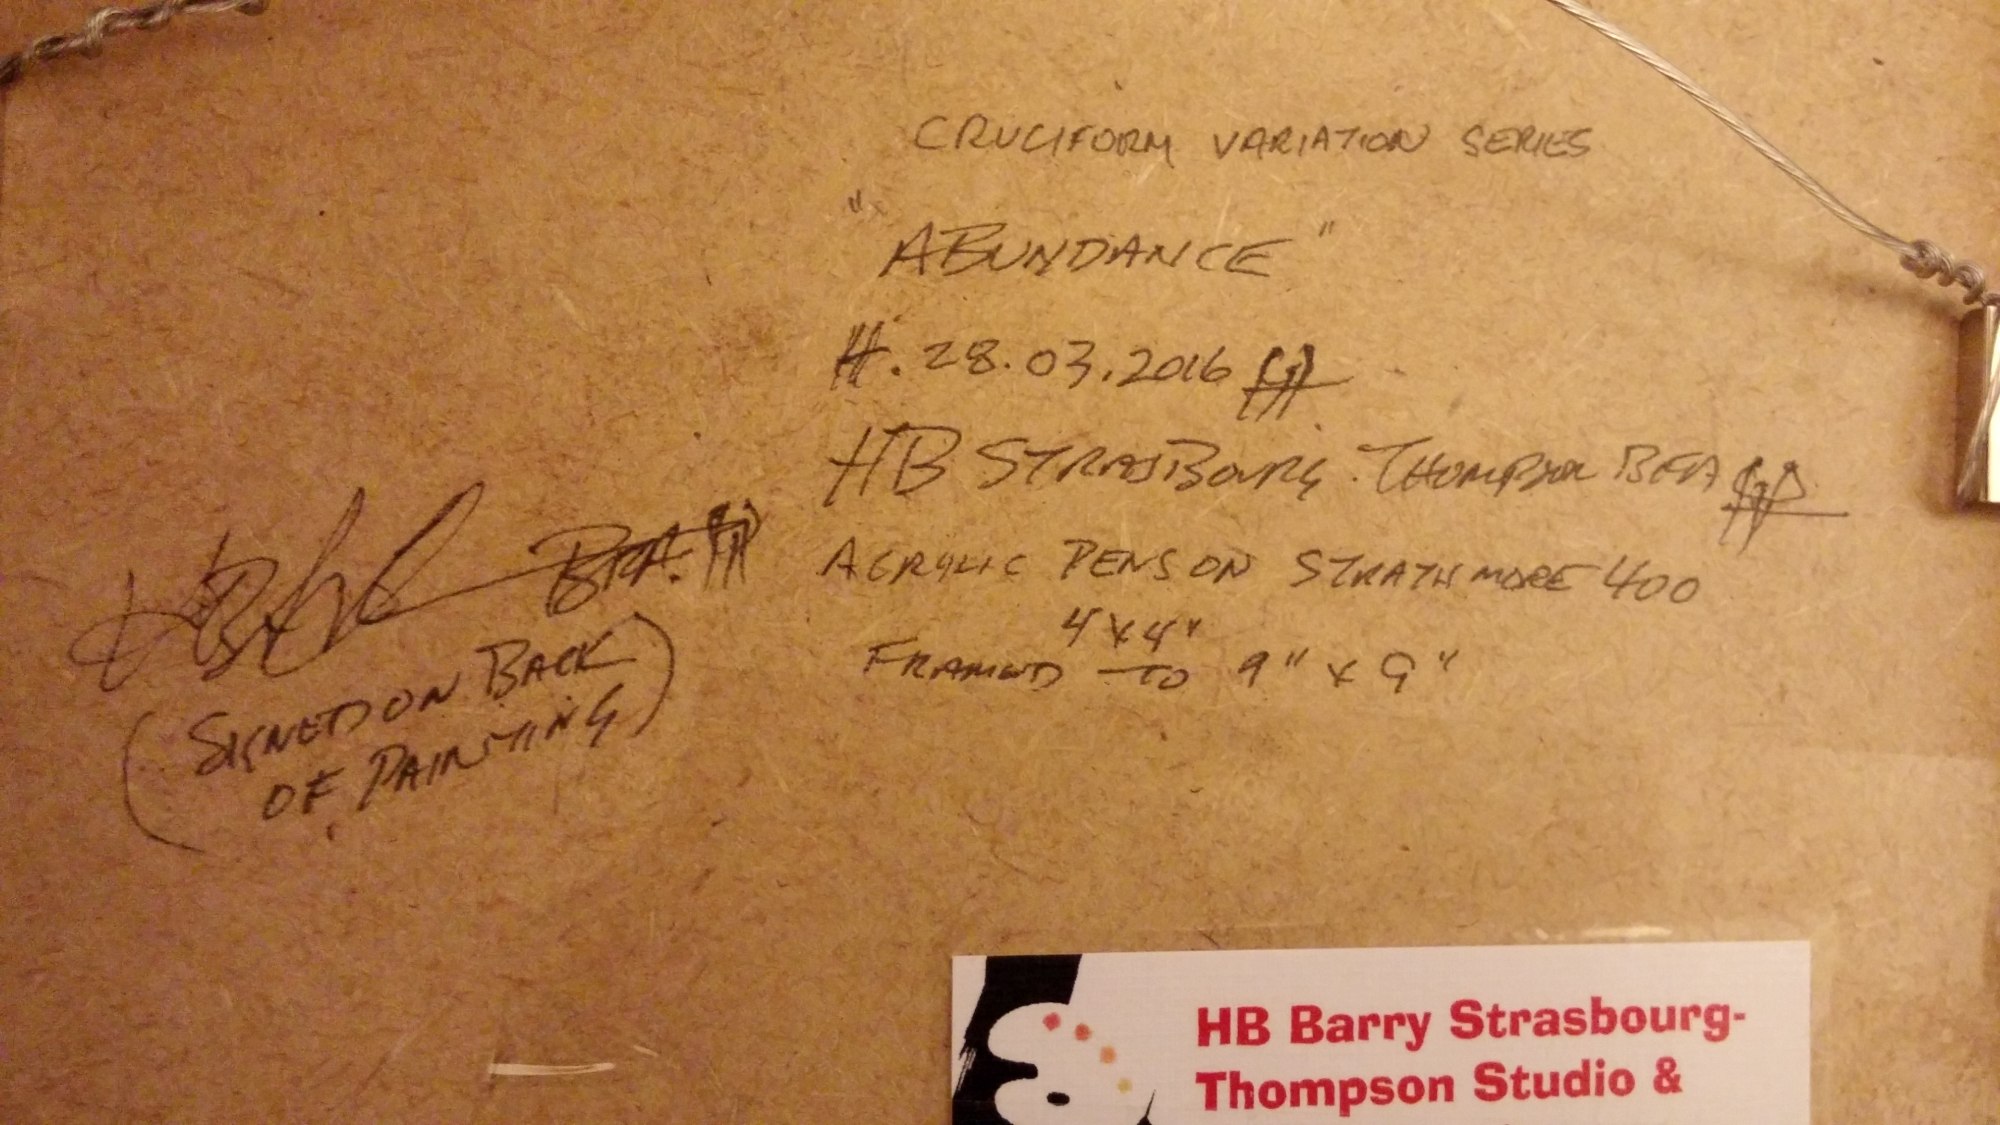 CRUCIFORM VARIATION SERIES
"ABUNDANCE"
28.03.2016
HB STRASBOURG-THOMPSON BFA
ACRYLIC PENS ON STRATHMORE 400
4"x4"
FRAMED TO 9" x 9"
HB BFA.
(SIGNED ON BACK
OF PAINTING)
HB Barry Strasbourg-
Thompson Studio &